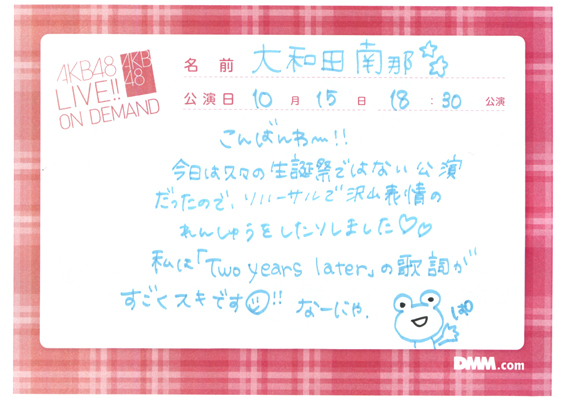 AKB48
LIVE!!
ON DEMAND
AKB
48
名前 大和田南那
公演日 10月15日 18:30 公演
こんばんわ〜!!
今日は久々の生誕祭ではない公演
だったので、リハーサルで沢山表情の
れんしゅうをしたりしました♡♡
私は「Two years later」の歌詞が
すごくスキです☺!!
なーにゃ.
DMM.com